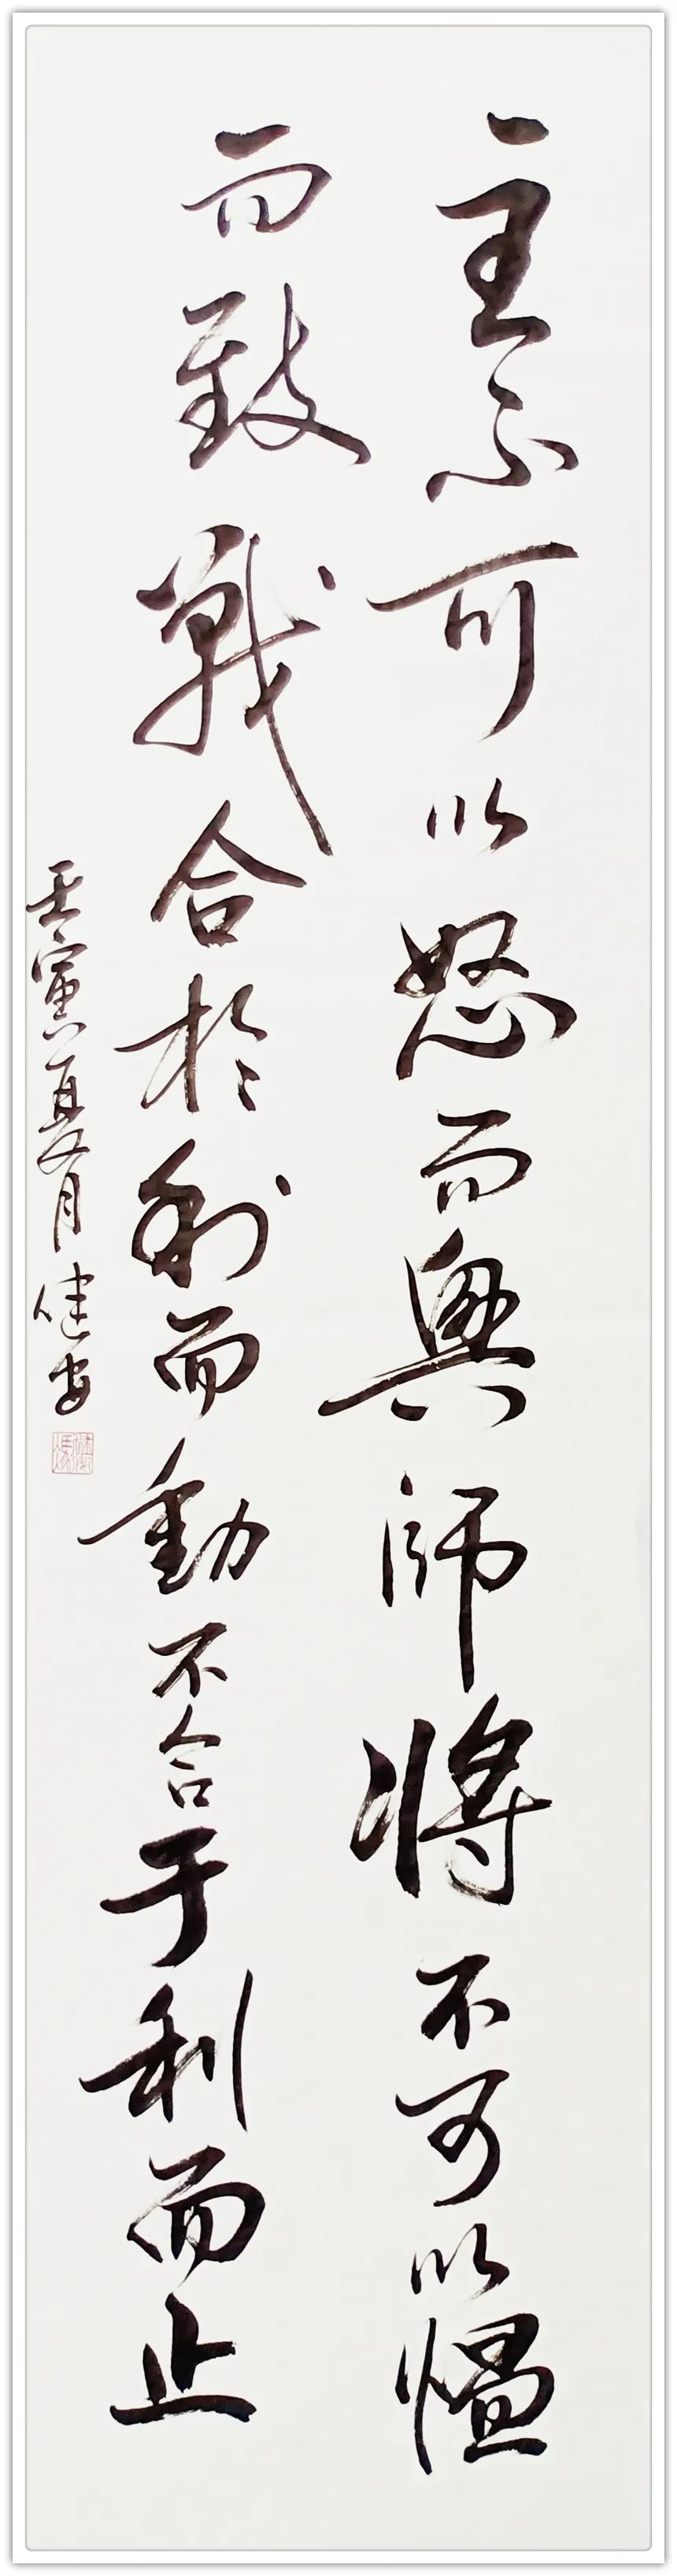 主不可以怒而興師將不可以愠
而致戰合於利而動不合于利而止
壬寅夏月健安